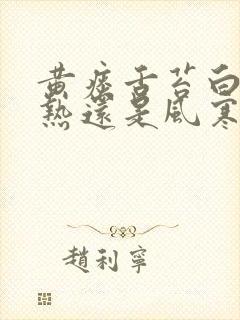 黄痰舌苔白
熱還是風寒
趙利寧